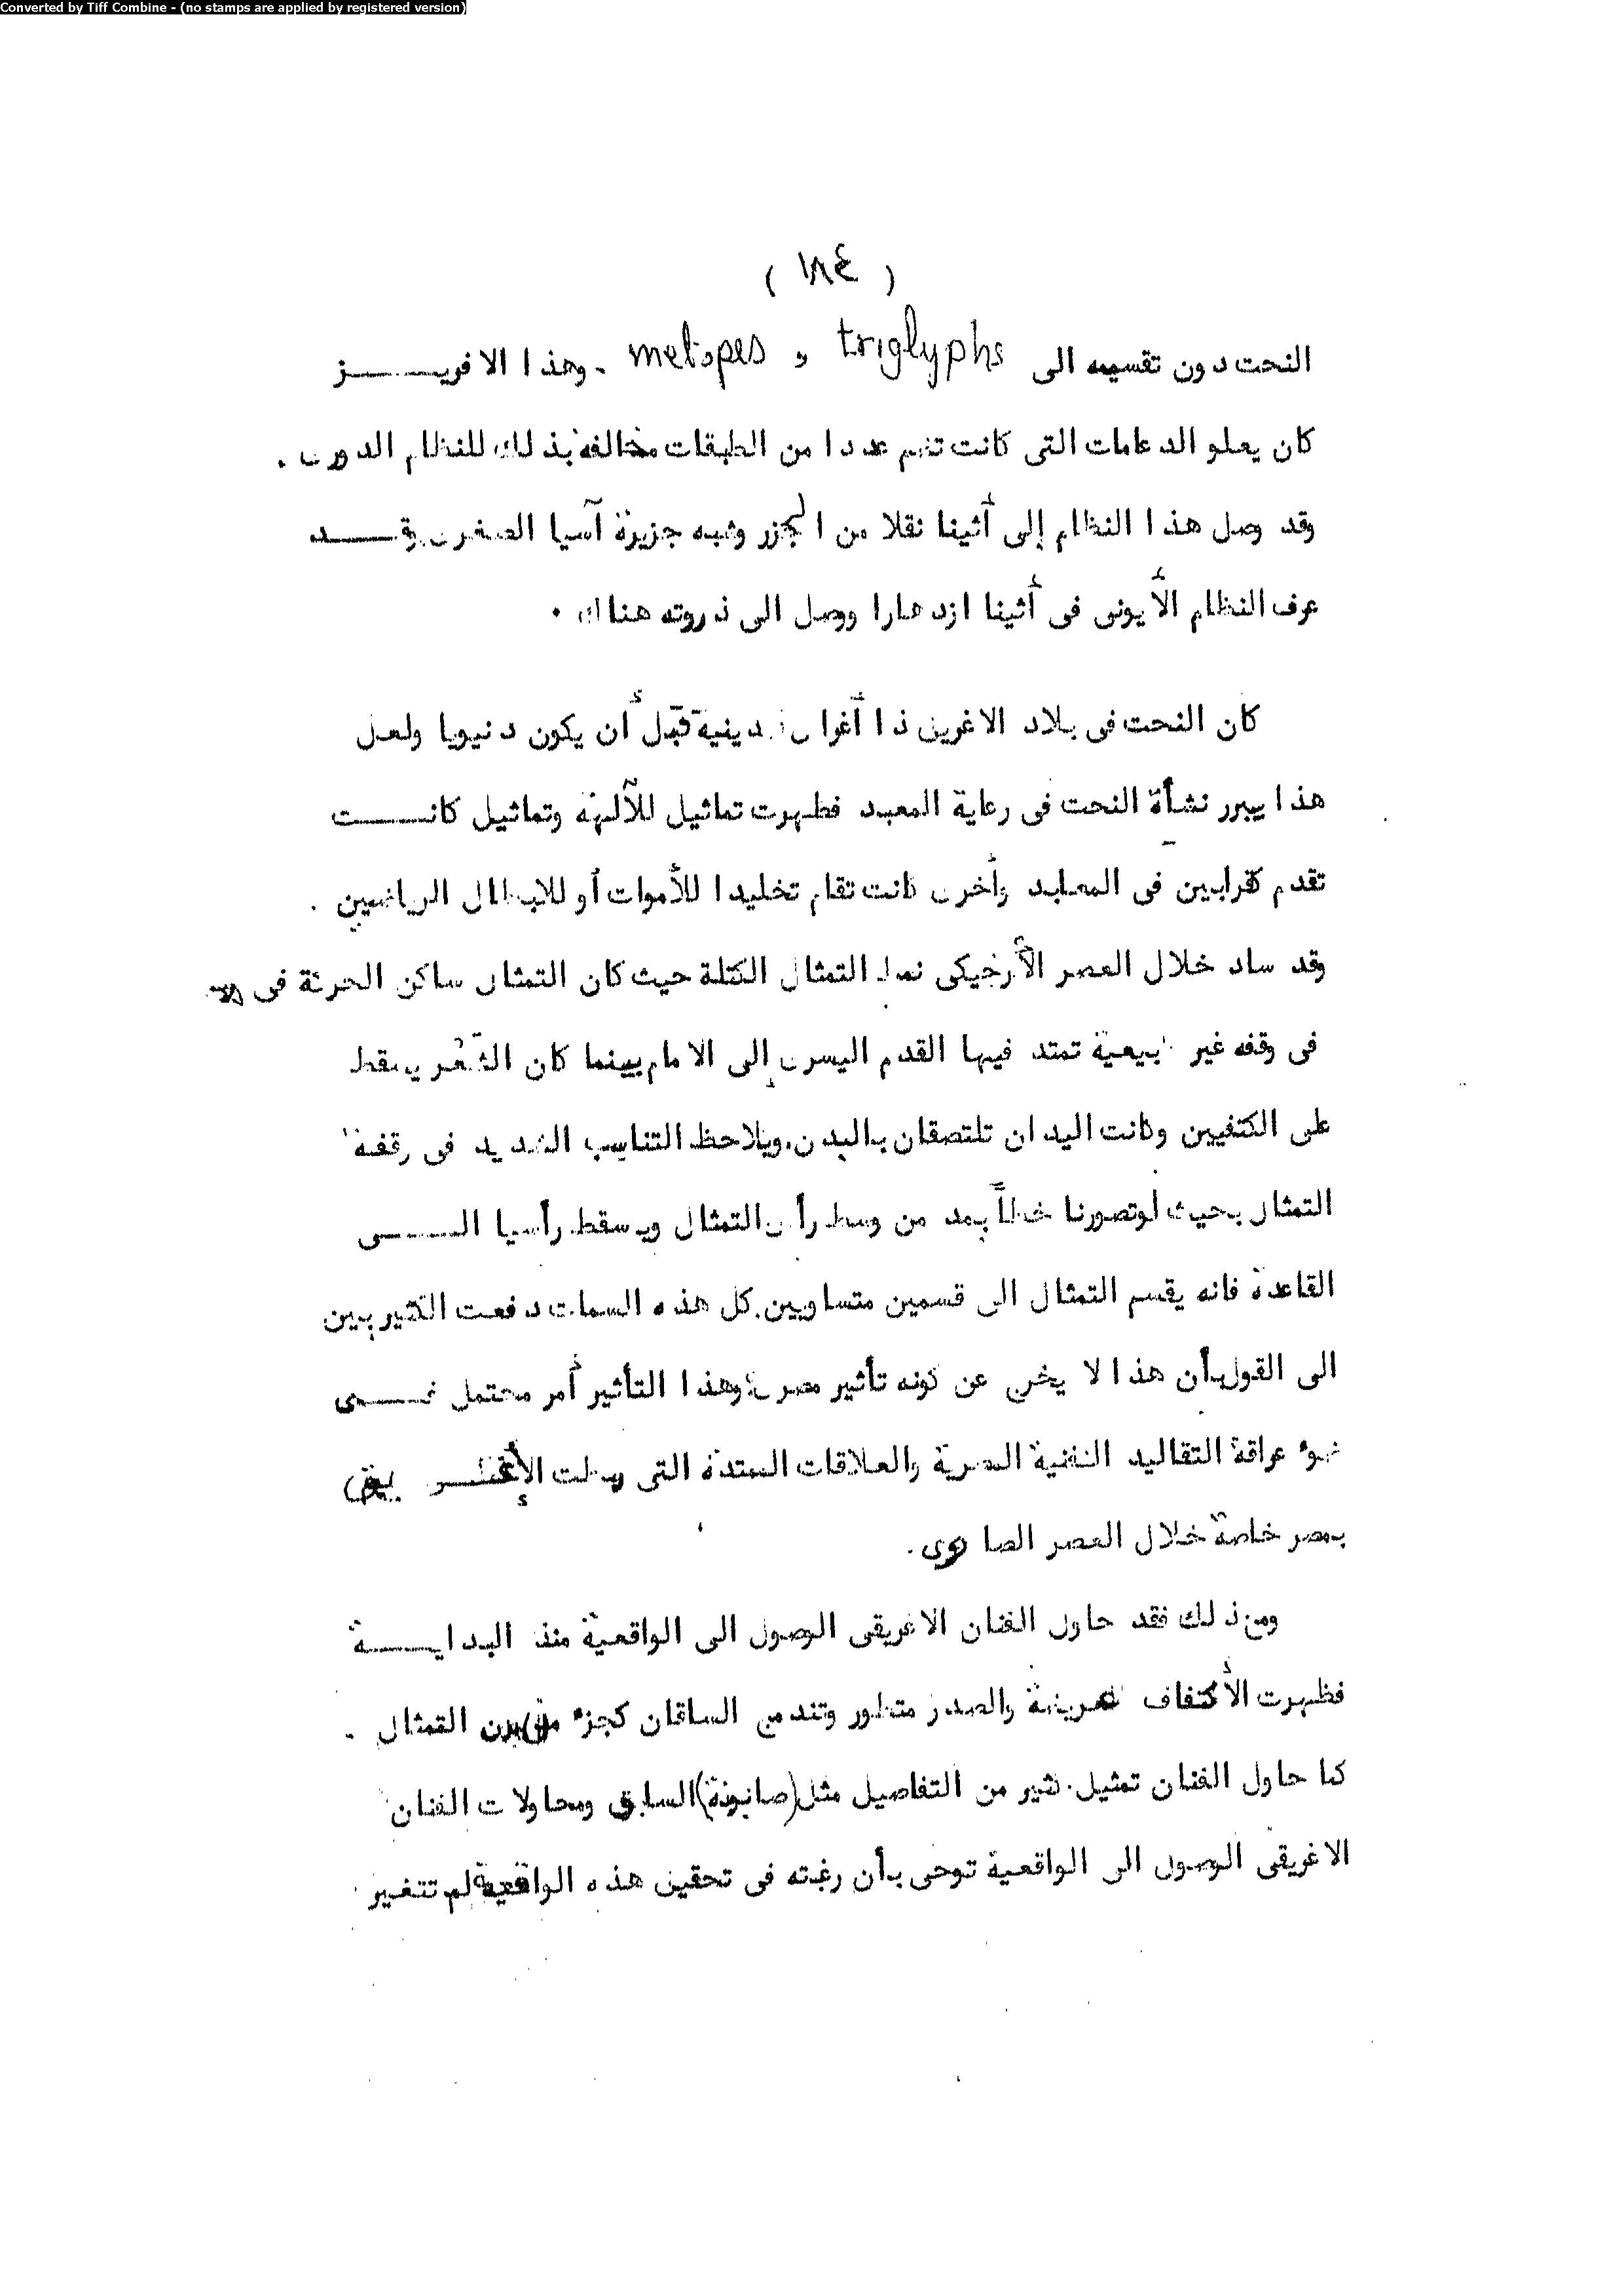 Converted by Tiff Combine - (no stamps are applied by registered version)
( ١٨٤ )
النحت دون تقسيمه الى triglyphs و metopes . وهذا الافريز
كان يعلو الدعامات التى كانت تضم عددا من الطبقات مخالفه بذلك للنظام الدورى .
وقد وصل هذا النظام إلى أثينا نقلا من الجزر وشبه جزيرة آسيا الصغرى وقد
عرف النظام الأيونى فى أثينا ازدهارا ووصل الى ذروته هناك .
كان النحت فى بلاد الاغريق ذا أغراض دينية قبل أن يكون دنيويا ولعل
هذا يبرر نشأة النحت فى رعاية المعبد فظهرت تماثيل للآلهة وتماثيل كانت
تقدم كقرابين فى المعابد وأخرى كانت تقام تخليدا للأموات أو للابطال الرياضيين .
وقد ساد خلال العصر الأرخيكى نمط التمثال الكتلة حيث كان التمثال ساكن الحركة فى
فى وقفه غير طبيعية تمتد فيها القدم اليسرى إلى الامام بينما كان الشعر يسقط
على الكتفيين وكانت اليدان تلتصقان بالبدن. ويلاحظ التناسب الشديد فى وقفة
التمثال بحيث لو تصورنا خطاً يمد من وسط رأس التمثال ويسقط رأسيا الى
القاعدة فانه يقسم التمثال الى قسمين متساويين. كل هذه السمات دفعت الكثيربين
الى القول بأن هذا لا يخرج عن كونه تأثير مصرى وهذا التأثير أمر محتمل فى
ضوء عراقة التقاليد الفنية المصرية والعلاقات الممتدة التى وصلت الإغريق
بمصر خاصة خلال العصر الصاوى .
ومع ذلك فقد حاول الفنان الاغريقى الوصول الى الواقعية منذ البداية
فظهرت الأكتفاف العريضة والصدر متطور وتندمج الساقان كجزء من بدن التمثال .
كما حاول الفنان تمثيل كثير من التفاصيل مثل (صابونة) الساق ومحاولات الفنان
الاغريقى الوصول الى الواقعية توحى بأن رغبته فى تحقيق هذه الواقعية لم تتغير